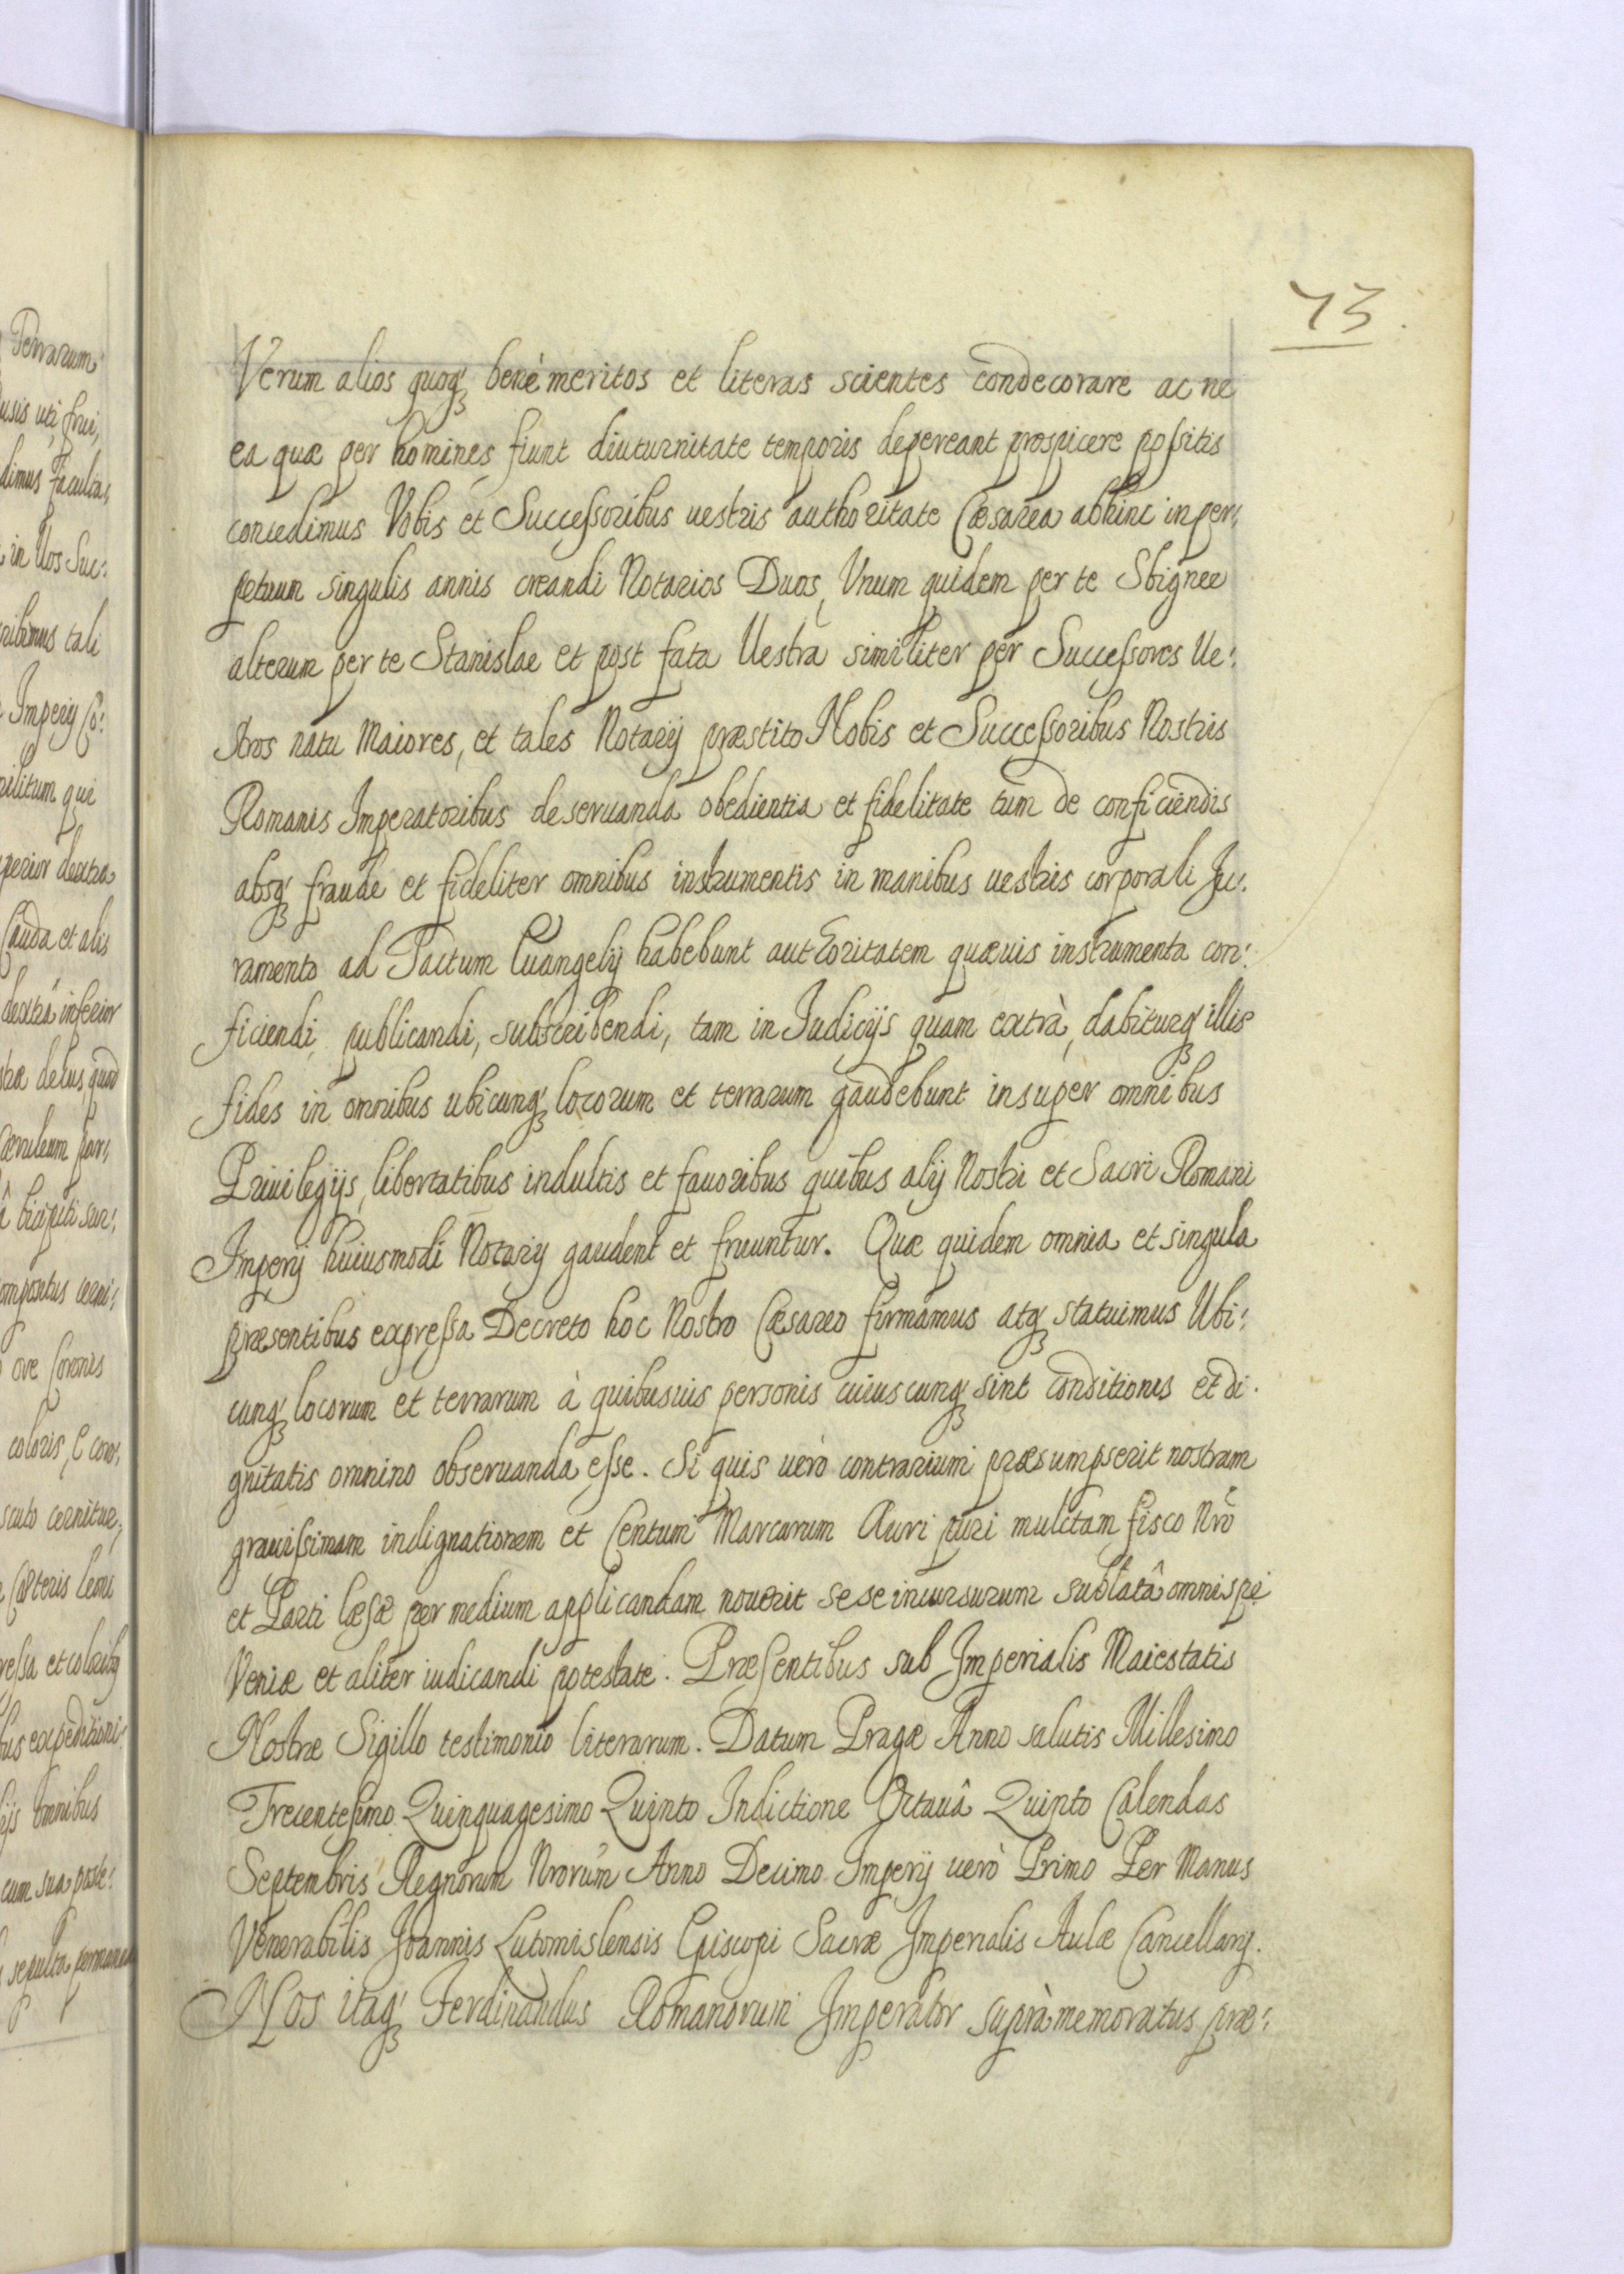 73
Verum alios quoq́ȝ benè meritos et literas scientes condecorare ac ne
ea quæ per homines fiunt diuturnitate temporis depereant prospicere possitis
concedimus Vobis et Successoribus uestris authoritate Cæsarea abhinc in per:
petuum singulis annis creandi Notarios Duos, Vnum quidem per te Sbignee
alterum per te Stanislae et post fata Uestra similiter per Successores Ue:
stros natu Maiores, et tales Notarij præstito Nobis et Successoribus Nostris
Romanis Imperatoribus de seruanda obedientia et fidelitate tum de conficiendis
absq́ȝ fraude et fideliter omnibus instrumentis in manibus uestris corporali Ju:
ramento ad Tactum Euangelij habebunt authoritatem quæuis instrumenta con:
ficiendi, publicandi, subscribendi, tam in Iudicijs quam extrà, dabiturq́ȝ illis
fides in omnibus ubicunq́ȝ locorum et terrarum gaudebunt insuper omnibus
Priuilegijs, libertatibus indultis et fauoribus quibus alij Nostri et Sacri Romani
Imperij huiusmodi Notarij gaudent et fruuntur. Quæ quidem omnia et singula
præsentibus expressa Decreto hoc Nostro Cæsareo firmamus atq́ȝ statuimus Ubi:
cunq́ȝ locorum et terrarum à quibusuis personis cuiuscunq́ȝ sint conditionis et di:
gnitatis omnino obseruanda esse. Si quis uerò contrarium præsumpserit nostram
grauissimam indignationem et Centum Marcarum Auri puri mulctam fisco Nrõ
et Parti læsæ per medium applicandam nouerit sese incursurum sublatâ omni spe
Veniæ et aliter iudicandi potestate. Præsentibus sub Imperialis Maiestatis
Nostræ Sigillo testimonio literarum. Datum Pragæ Anno salutis Millesimo
Trecentesimo Quinquagesimo Quinto Indictione Octauâ Quinto Calendas
Septembris Regnorum Nrorum̃ Anno Decimo Imperij uerò Primo Per Manus
Venerabilis Joannis Lutomislensis Episcopi Sacræ Imperialis Aulæ Cancellarij.
NOS itaq́ȝ Ferdinandus Romanorum Imperator suprà memoratus præ: